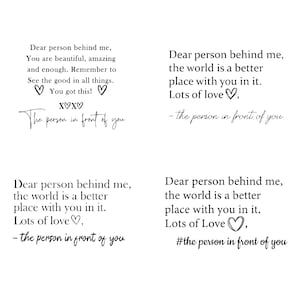 Dear person behind me,
You are beautiful, amazing
and enough. Remember to
See the good in all things.
You got this!
XOXO
The person in front of you
Dear person behind me,
the world is a better
place with you in it.
Lots of love,
- the person in front of you
Dear person behind me,
the world is a better
place with you in it.
Lots of love,
- the person in front of you
Dear person behind me,
the world is a better
place with you in it.
Lots of Love,
#the person in front of you